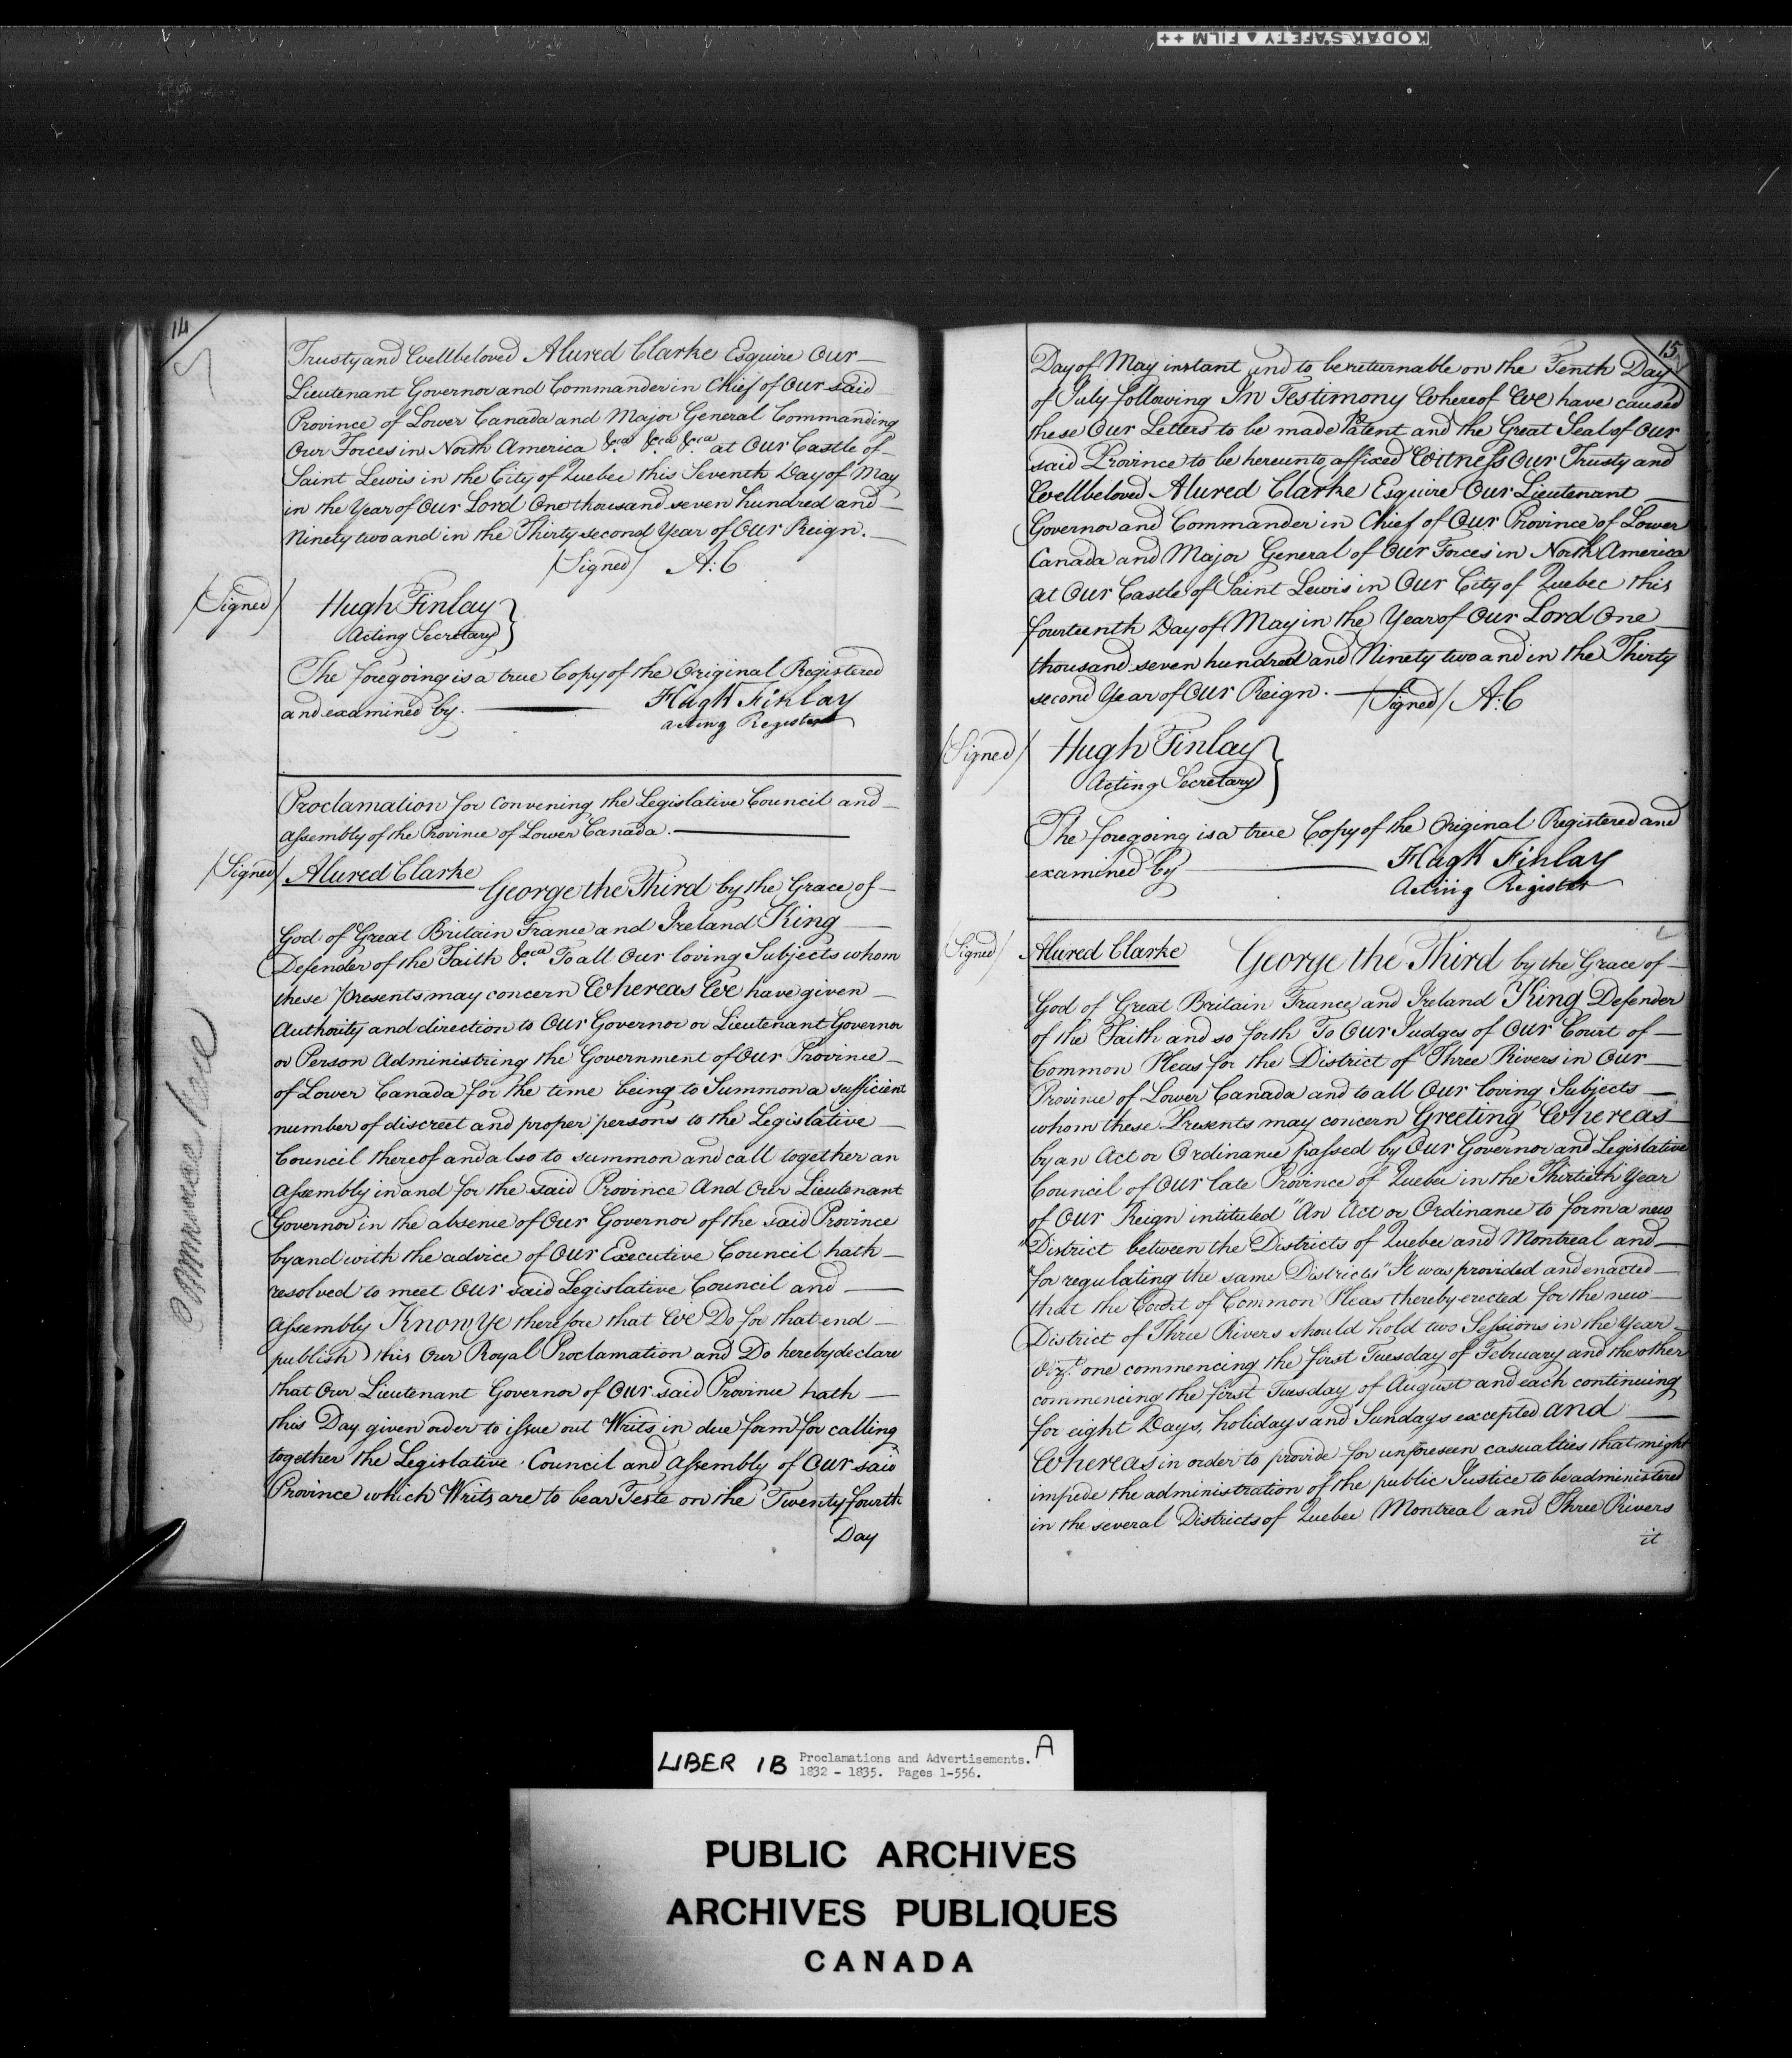 KODAK SAFETY ▲ FILM ++
14
Trusty and Wellbeloved Alured Clarke Esquire Our
Lieutenant Governor and Commander in Chief of Our said
Province of Lower Canada and Major General Commanding
Our Forces in North America &ca &ca &ca at Our Castle of
Saint Lewis in the City of Quebec this Seventh Day of May
in the Year of Our Lord One thousand seven hundred and
Ninety two and in the Thirty second Year of Our Reign.
(Signed) A:C
(Signed) Hugh Finlay
Acting Secretary
The foregoing is a true Copy of the Original Registered
and examined by. Hugh Finlay
acting Register
Proclamation for convening the Legislative Council and
Assembly of the Province of Lower Canada.
(Signed) Alured Clarke
George the Third by the Grace of
God of Great Britain France and Ireland King
Defender of the Faith &ca To all Our loving Subjects whom
these presents may concern Whereas We have given
Authority and direction to Our Governor or Lieutenant Governor
or Person Administring the Government of Our Province
of Lower Canada for the time being to Summon a sufficient
number of discreet and proper persons to the Legislative
Council thereof and also to summon and call together an
Assembly in and for the said Province And Our Lieutenant
Governor in the absence of Our Governor of the said Province
by and with the advice of Our Executive Council hath
resolved to meet Our said Legislative Council and
Assembly Know Ye therefore that We Do for that end
publish this Our Royal Proclamation and Do hereby declare
that Our Lieutenant Governor of Our said Province hath
this Day given order to issue out Writs in due form for calling
together the Legislative Council and Assembly of Our said
Province which Writs are to bear Teste on the Twenty fourth
Day
15
Day of May instant and to be returnable on the Tenth Day
of July following In Testimony Whereof We have caused
these Our Letters to be made Patent and the Great Seal of Our
said Province to be hereunto affixed Witness Our Trusty and
Wellbeloved Alured Clarke Esquire Our Lieutenant
Governor and Commander in Chief of Our Province of Lower
Canada and Major General of Our Forces in North America
at Our Castle of Saint Lewis in Our City of Quebec this
fourteenth Day of May in the Year of Our Lord One
thousand seven hundred and Ninety two and in the Thirty
second Year of Our Reign. (Signed) A:C
(Signed) Hugh Finlay
Acting Secretary
The foregoing is a true Copy of the Original Registered and
examined by Hugh Finlay
Acting Register
(Signed) Alured Clarke George the Third by the Grace of
God of Great Britain France and Ireland King Defender
of the Faith and so forth To Our Judges of Our Court of
Common Pleas for the District of Three Rivers in Our
Province of Lower Canada and to all Our loving Subjects
whom these Presents may concern Greeting Whereas
by an Act or Ordinance passed by Our Governor and Legislative
Council of Our late Province of Quebec in the Thirtieth Year
of Our Reign intituled "An Act or Ordinance to form a new
"District between the Districts of Quebec and Montreal and
"for regulating the same Districts" It was provided and enacted
that the Court of Common Pleas thereby erected for the new
District of Three Rivers should hold two Sessions in the Year
Vizt. one commencing the first Tuesday of February and the other
commencing the first Tuesday of August and each continuing
for eight Days, holidays and Sundays excepted And
Whereas in order to provide for unforeseen casualties that might
impede the administration of the public Justice to be administered
in the several Districts of Quebec Montreal and Three Rivers
it
LIBER 1B Proclamations and Advertisements. A
1832 - 1835. Pages 1-556.
PUBLIC ARCHIVES
ARCHIVES PUBLIQUES
CANADA